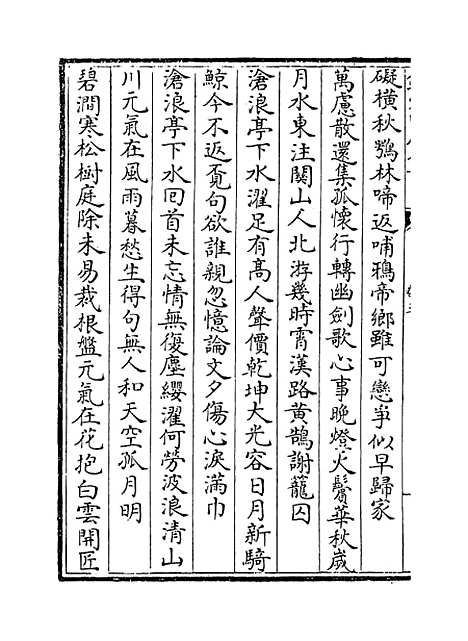 礙橫秋鶚林啼返哺鴉帝鄉雖可戀爭似早歸家
萬慮散還集孤懷行轉幽劍歌心事晚燈火鬢華秋歲
月水東注關山人北游幾時霄漢路黃鵠謝籠囚
滄浪亭下水濯足有高人聲價乾坤大光容日月新騎
鯨今不返覔句欲誰親忽憶論文夕傷心淚滿巾
滄浪亭下水回首未忘情無復塵纓濯何勞波浪清山
川元氣在風雨暮愁生得句無人和天空孤月明
碧澗寒松樹庭除未易栽根盤元氣在花抱白雲開匠